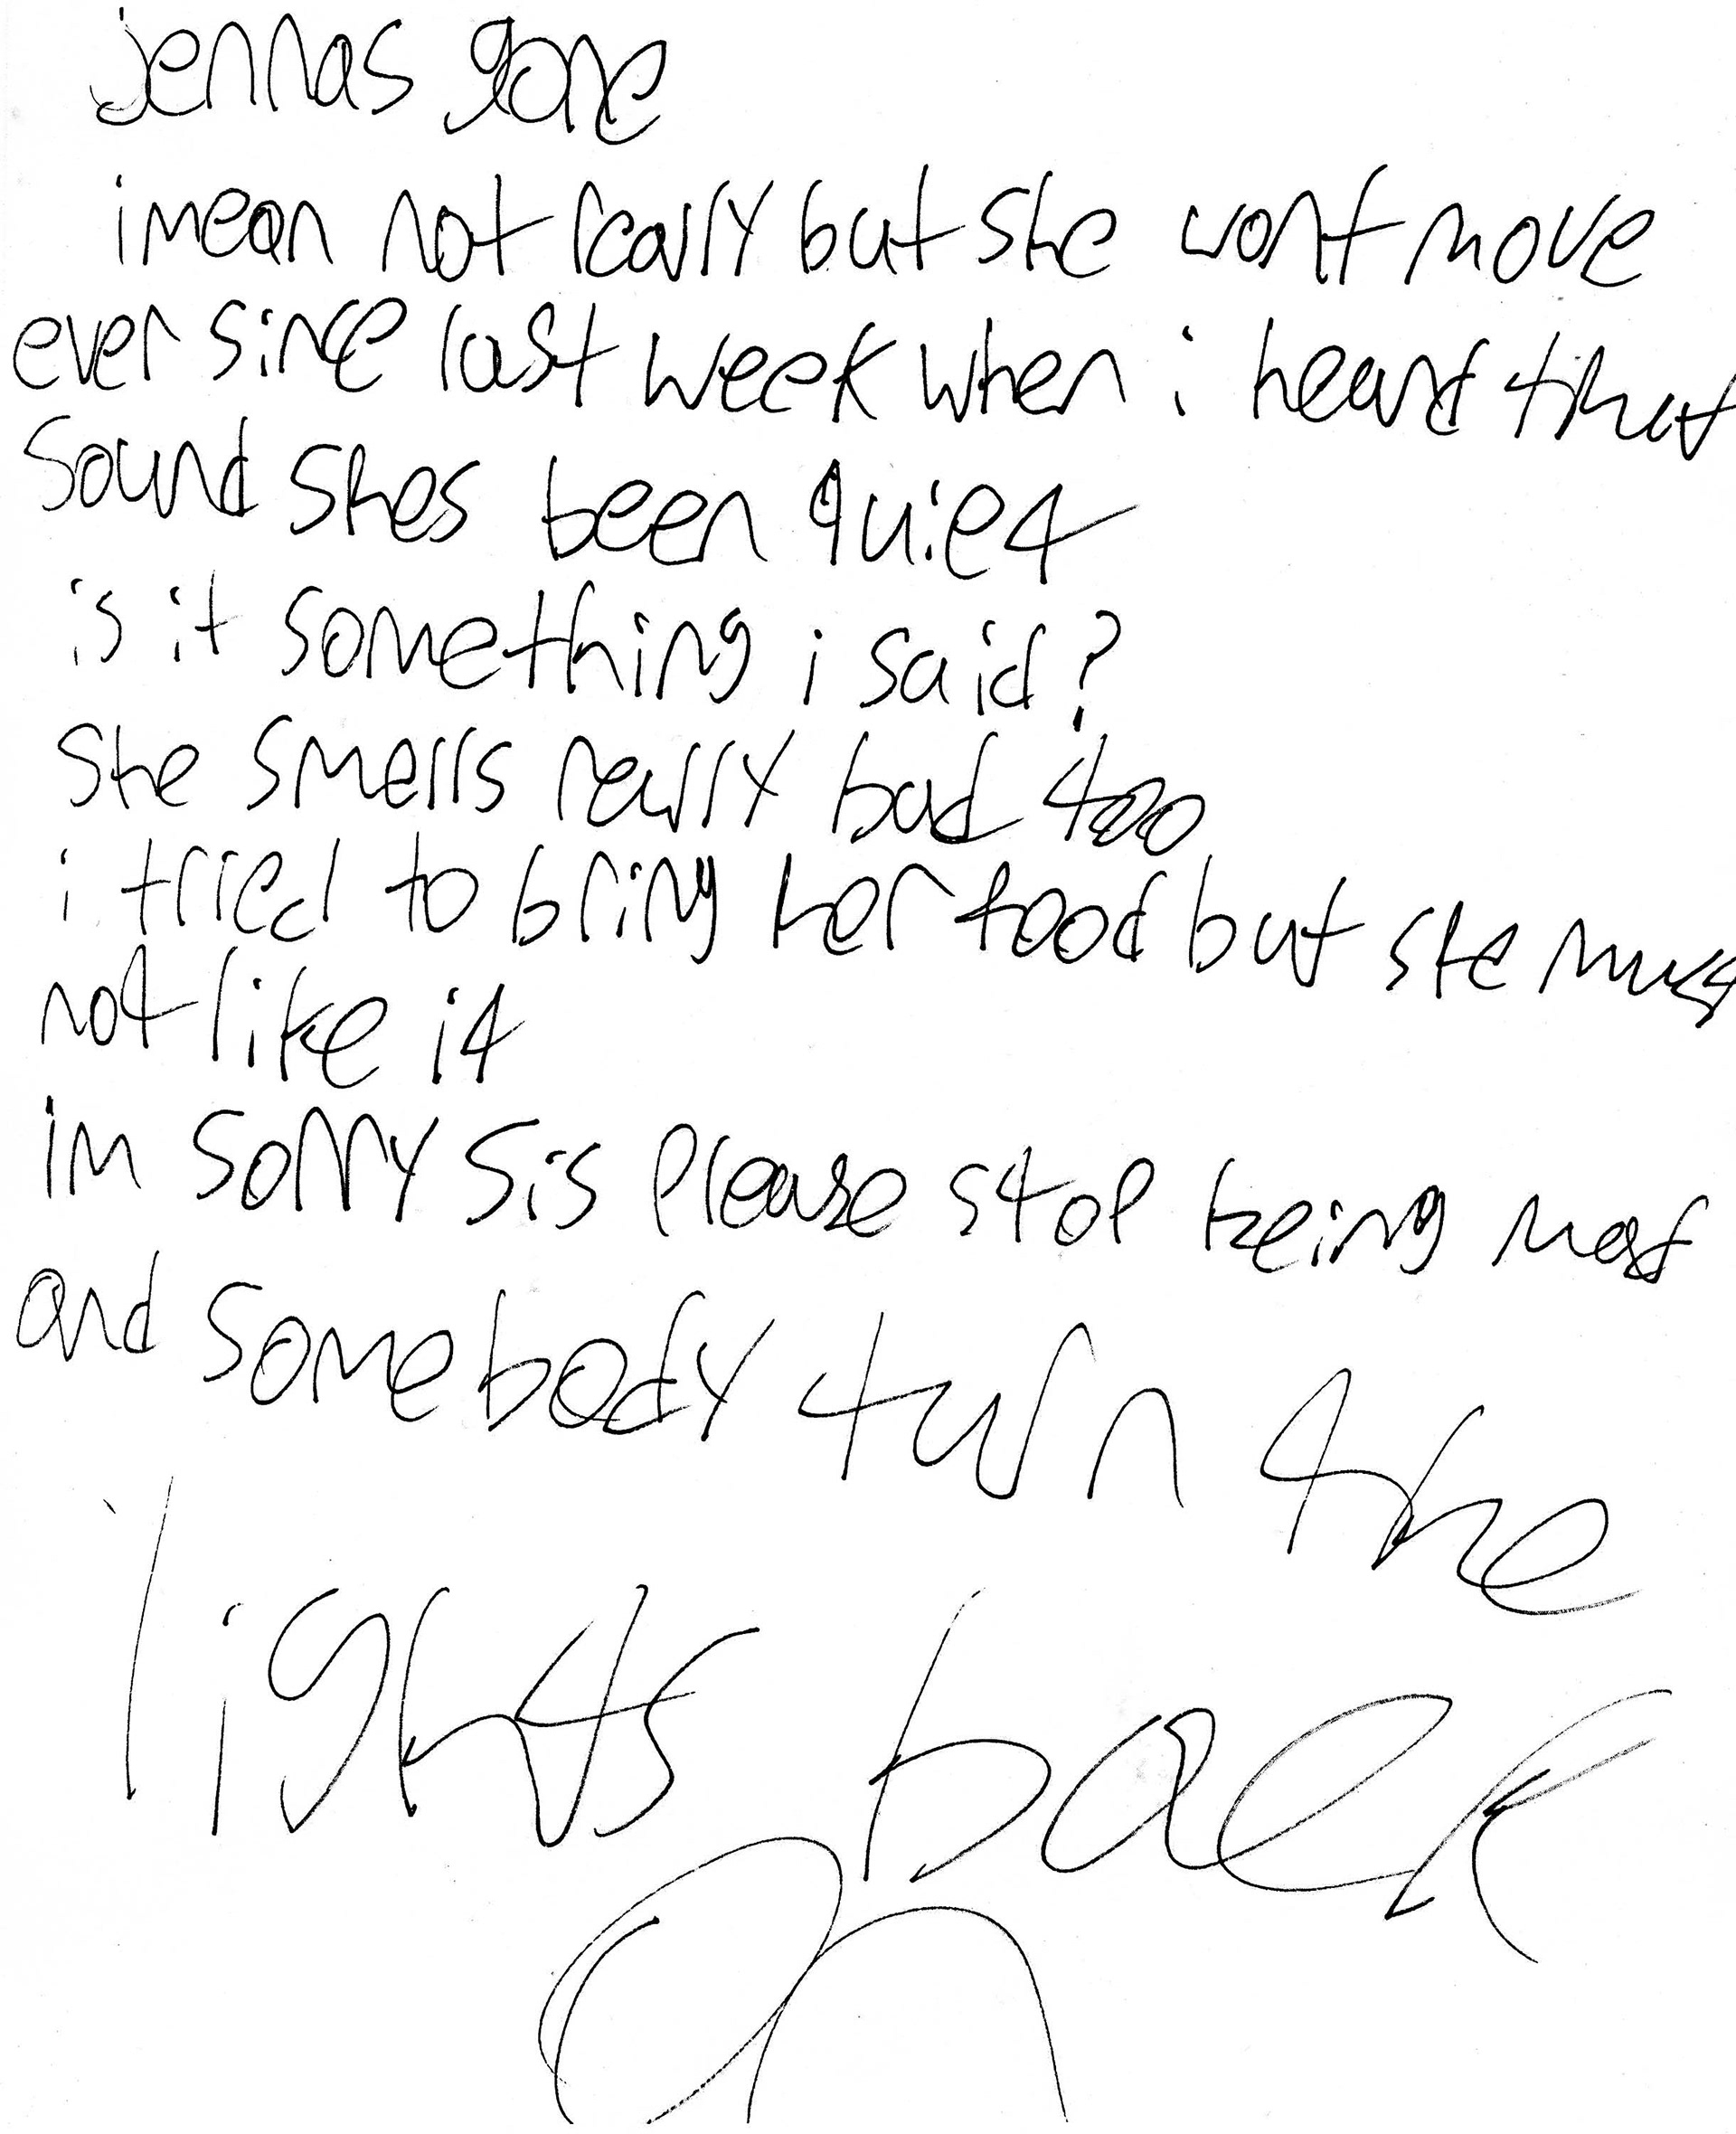 jennas gone
i mean not really but she wont move
ever since last week when i heard that
sound shes been quiet
is it something i said?
she smells really bad too
i tried to bring her food but she must
not like it
im sorry sis please stop being mad
and somebody turn the
lights back
on